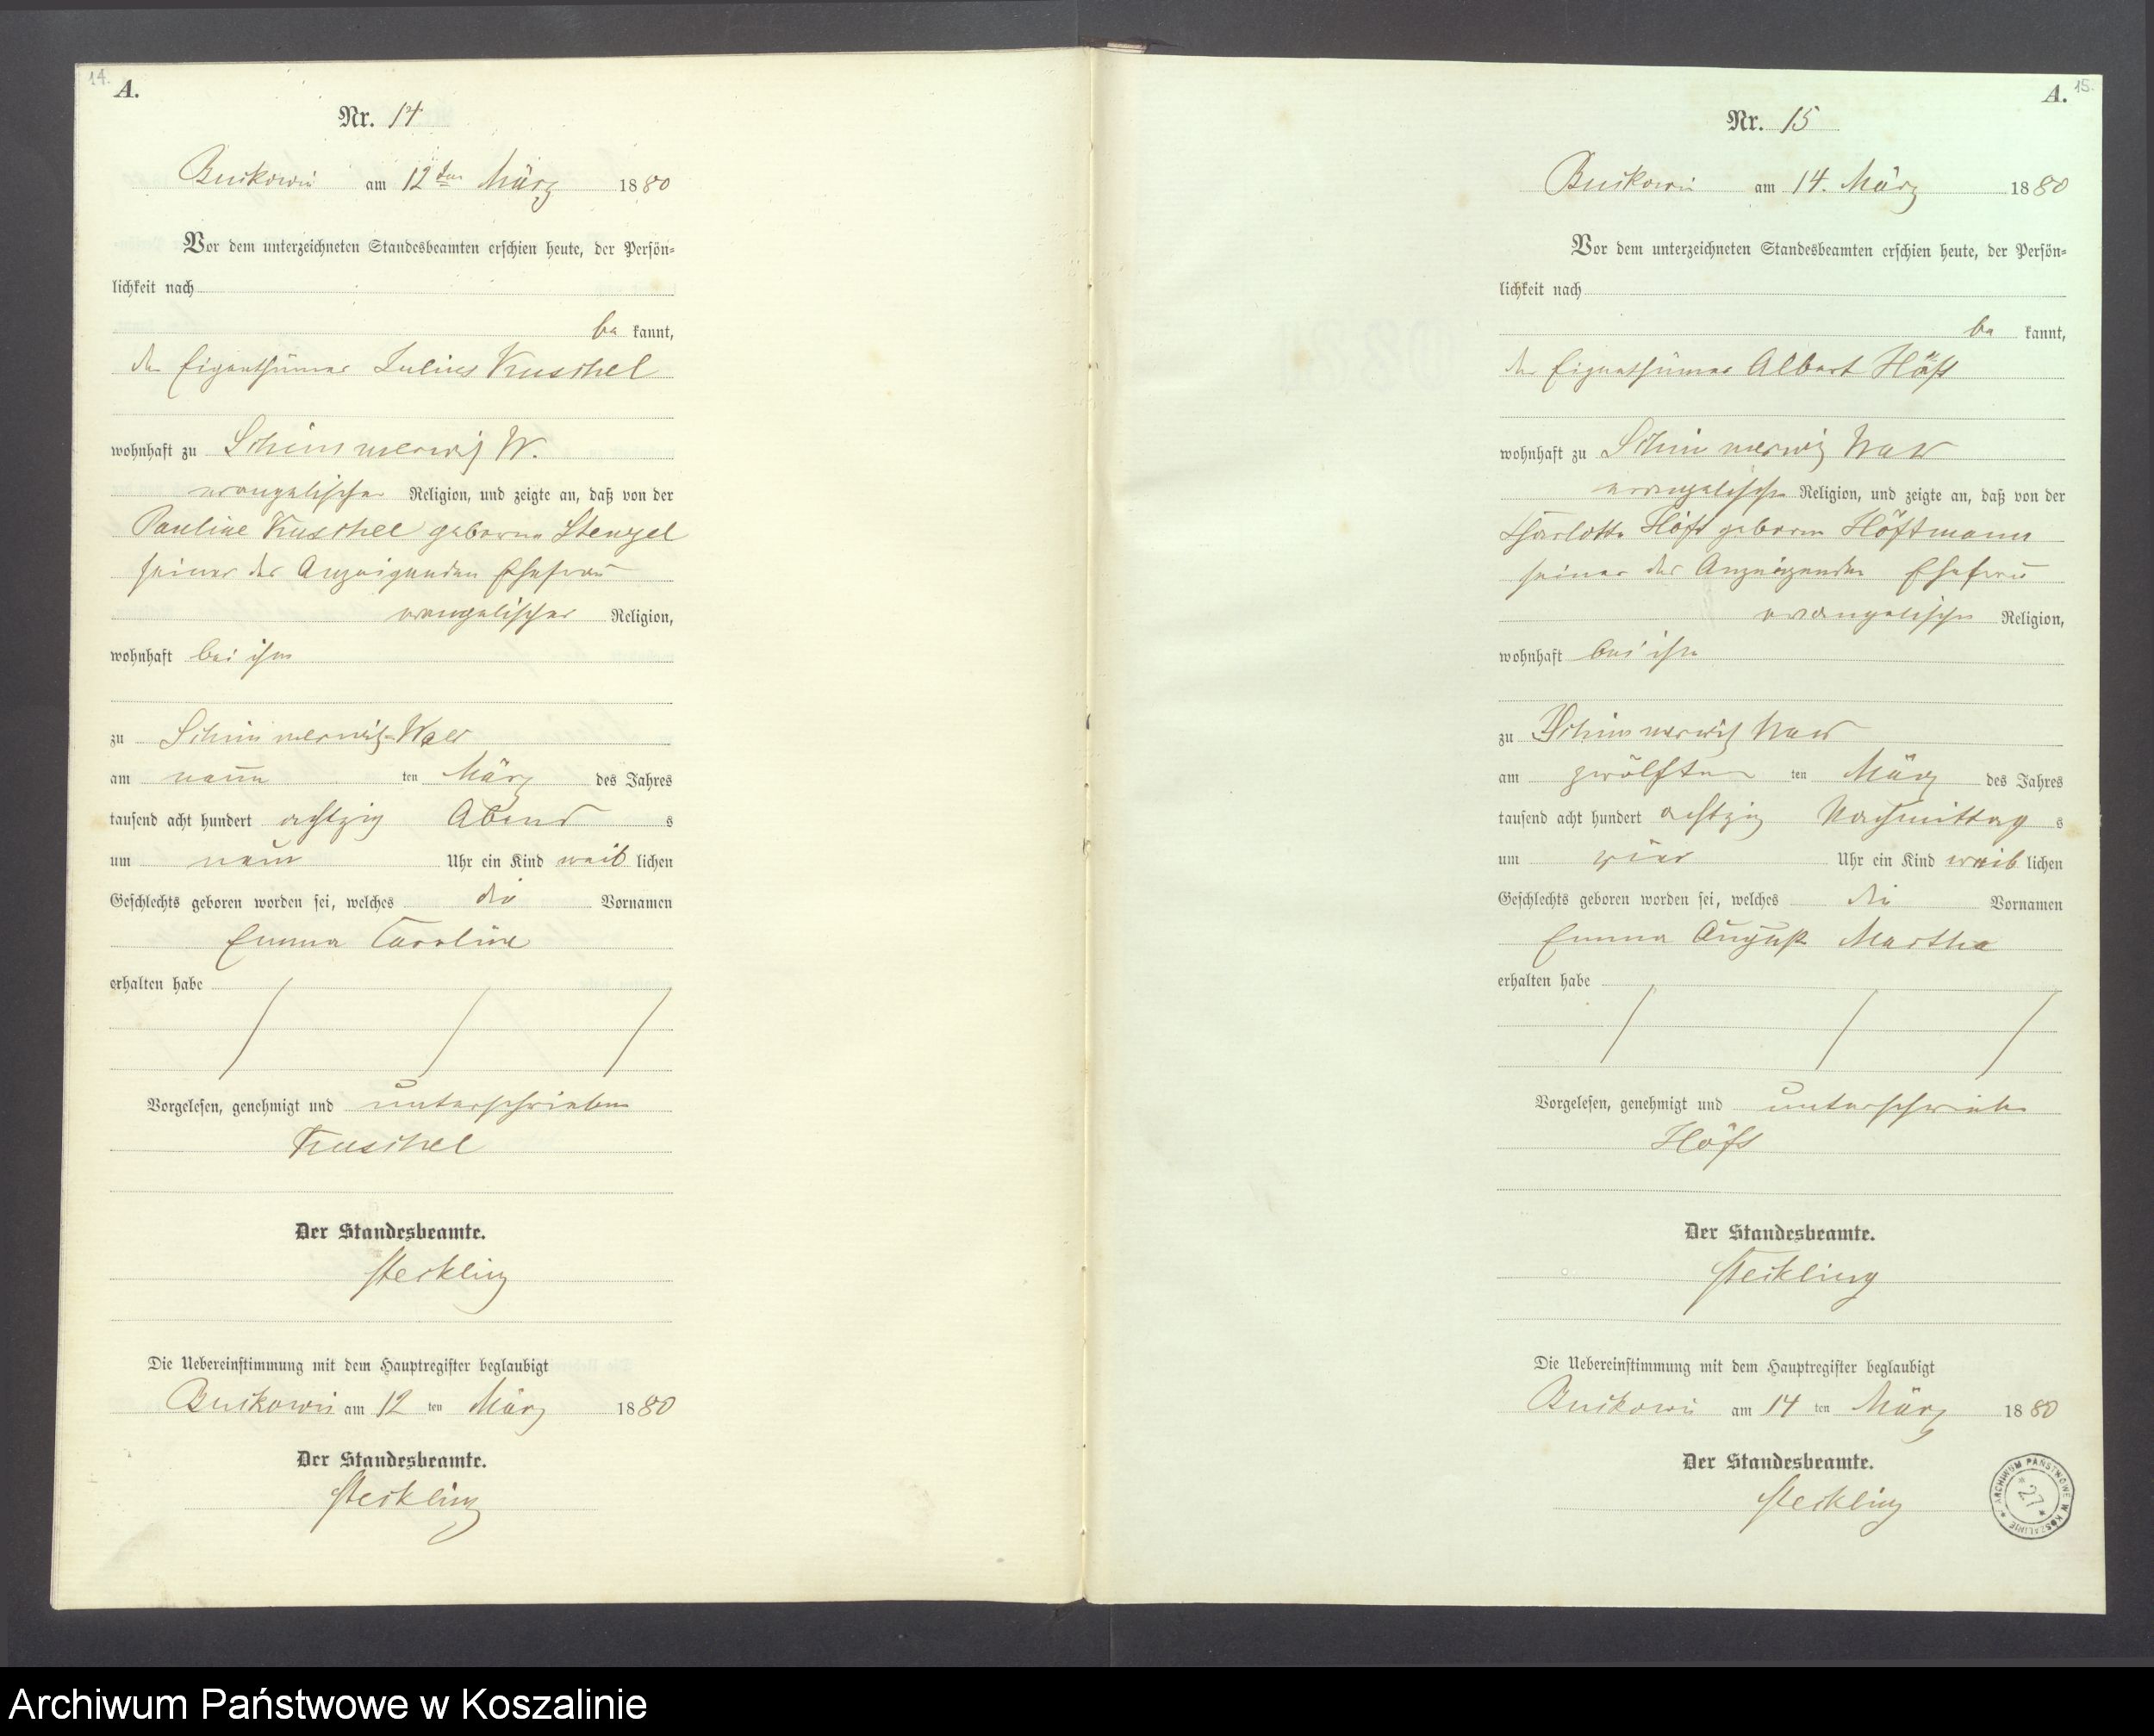 14.
A.
Nr. 14
Buckowin am 12ten März 1880
Vor dem unterzeichneten Standesbeamten erschien heute, der Persön-
lichkeit nach
be kannt,
der Eigenthümer Julius Kuschel
wohnhaft zu Schimmerwitz W.
evangelischer Religion, und zeigte an, daß von der
Pauline Kuschel geborne Stenzel
seiner des Anzeigenden Ehefrau
evangelischer Religion,
wohnhaft bei ihm
zu Schimmerwitz
am neun ten März des Jahres
tausend acht hundert achtzig Abend s
um neun Uhr ein Kind weib lichen
Geschlechts geboren worden sei, welches die Vornamen
Emma Caroline
erhalten habe
Vorgelesen, genehmigt und unterschrieben
Kuschel
Der Standesbeamte.
Steckling
Die Uebereinstimmung mit dem Hauptregister beglaubigt
Buckowin am 12 ten März 1880
Der Standesbeamte.
Steckling
15.
A.
Nr. 15
Buckowin am 14. März 1880
Vor dem unterzeichneten Standesbeamten erschien heute, der Persön-
lichkeit nach
be kannt,
der Eigenthümer Albert Höft
wohnhaft zu Schimmerwitz
evangelischer Religion, und zeigte an, daß von der
Charlotte Höft geborne Höftmann
seiner des Anzeigenden Ehefrau
evangelischer Religion,
wohnhaft bei ihm
zu Schimmerwitz
am zwölften ten März des Jahres
tausend acht hundert achtzig Nachmittag s
um vier Uhr ein Kind weib lichen
Geschlechts geboren worden sei, welches die Vornamen
Emma August Martha
erhalten habe
Vorgelesen, genehmigt und unterschrieben
Höft
Der Standesbeamte.
Steckling
Die Uebereinstimmung mit dem Hauptregister beglaubigt
Buckowin am 14 ten März 1880
Der Standesbeamte.
Steckling
ARCHIWUM PAŃSTWOWE W KOSZALINIE
27
Archiwum Państwowe w Koszalinie